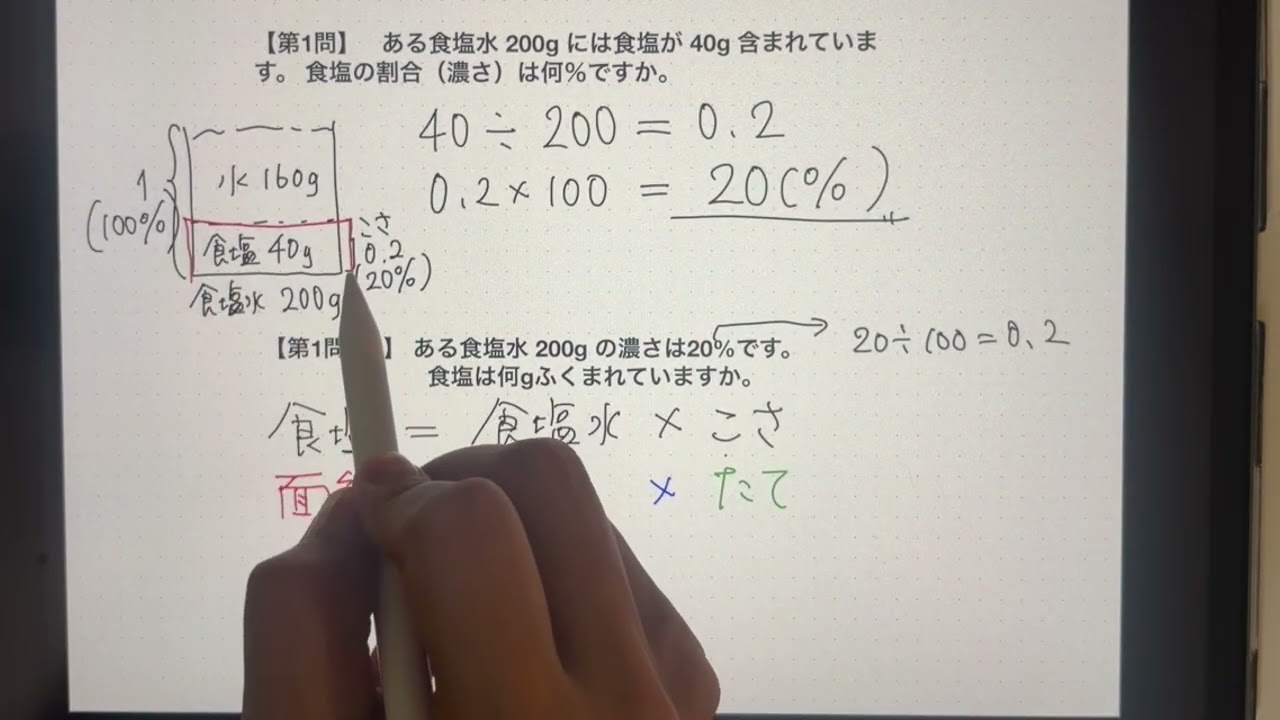 【第1問】 ある食塩水 200g には食塩が 40g 含まれていま
す。 食塩の割合（濃さ）は何％ですか。
40 ÷ 200 = 0.2
0.2 × 100 = 20(%)
1
(100%)
水 160g
食塩 40g
こさ
0.2
(20%)
食塩水 200g
【第1問 】 ある食塩水 200g の濃さは20％です。
食塩は何gふくまれていますか。
20÷100=0.2
食塩 = 食塩水 × こさ
面 × たて